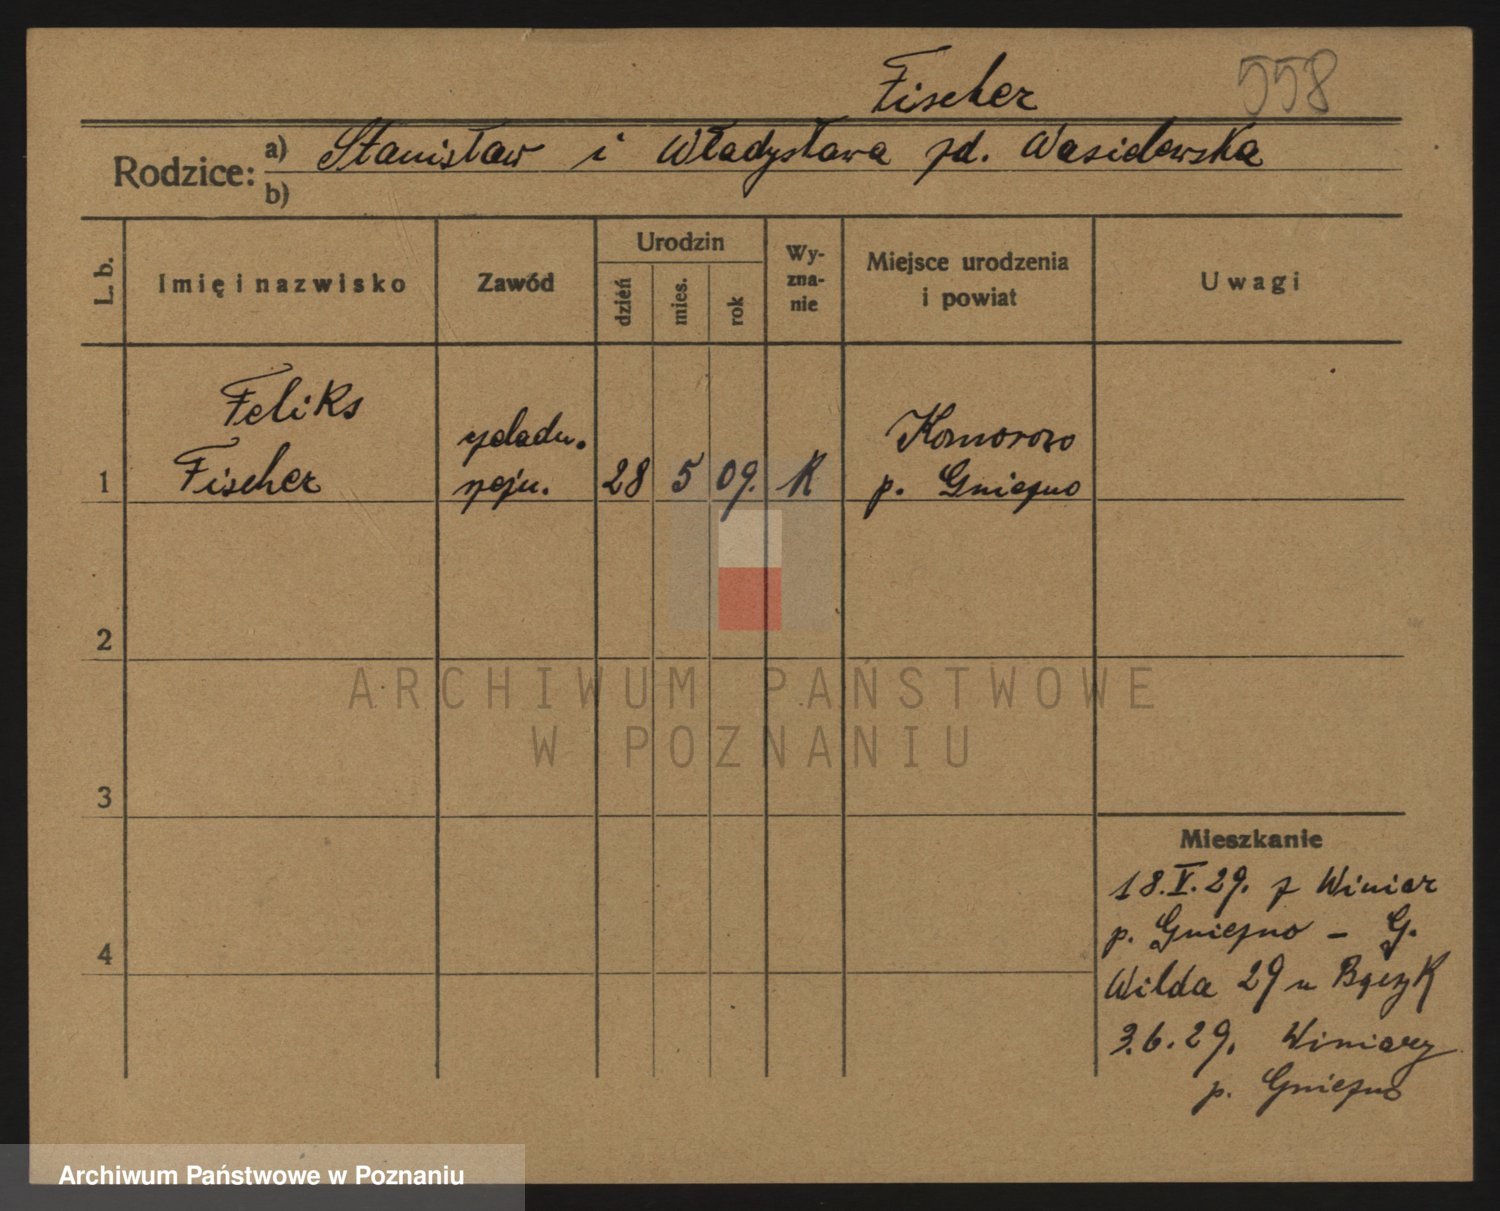 Fischer
558
Rodzice:
a) Stanisław i Władysława zd. Wasielewska
b)
L. b.
Imię i nazwisko
Zawód
Urodzin
dzień
mies.
rok
Wy-
zna-
nie
Miejsce urodzenia
i powiat
Uwagi
Feliks
Fischer
1
28 5 09. K
Komorowo
p. Gniezno
2
ARCHIWUM PAŃSTWOWE
W POZNANIU
3
4
Mieszkanie
18.V.29. z Winiar
p. Gniezno – G.
Wilda 29 u Bączyk
3.6.29. Winiary
p. Gniezno
Archiwum Państwowe w Poznaniu